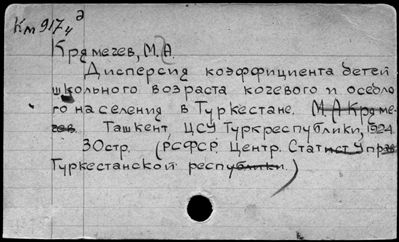 Км 917ч д
Крямечев, М.А.
Дисперсия коэффициента детей
школьного возраста кочевого и оседло
го населения в Туркестане. М А Кряме-
чев. Ташкент, ЦСУ Туркреспублики, 1924.
30стр. (РСФСР. Центр. Статист Управ
Туркестанской республики.)